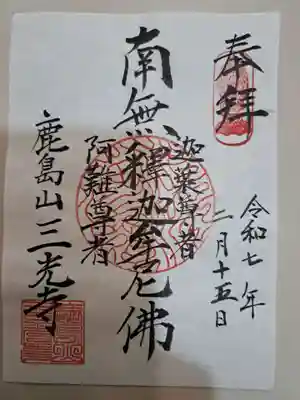 奉拝
令和七年
二月十五日
迦葉尊者
南無釋迦牟尼佛
阿難尊者
鹿島山三光寺